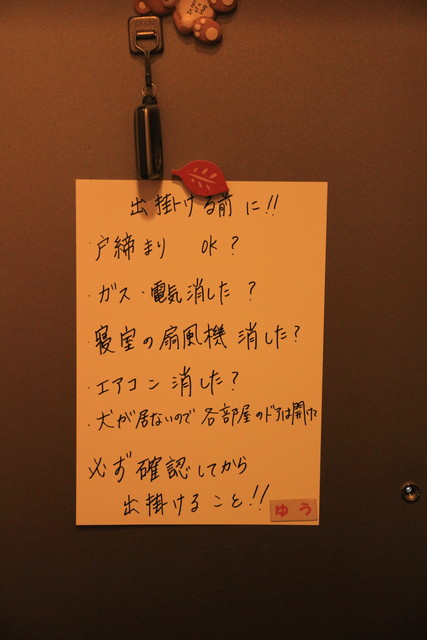 出掛ける前に!!
・戸締まり OK?
・ガス・電気消した?
・寝室の扇風機 消した?
・エアコン消した?
・犬が居ないので各部屋のドアは開けた
必ず確認してから
出掛けること!!
ゆう